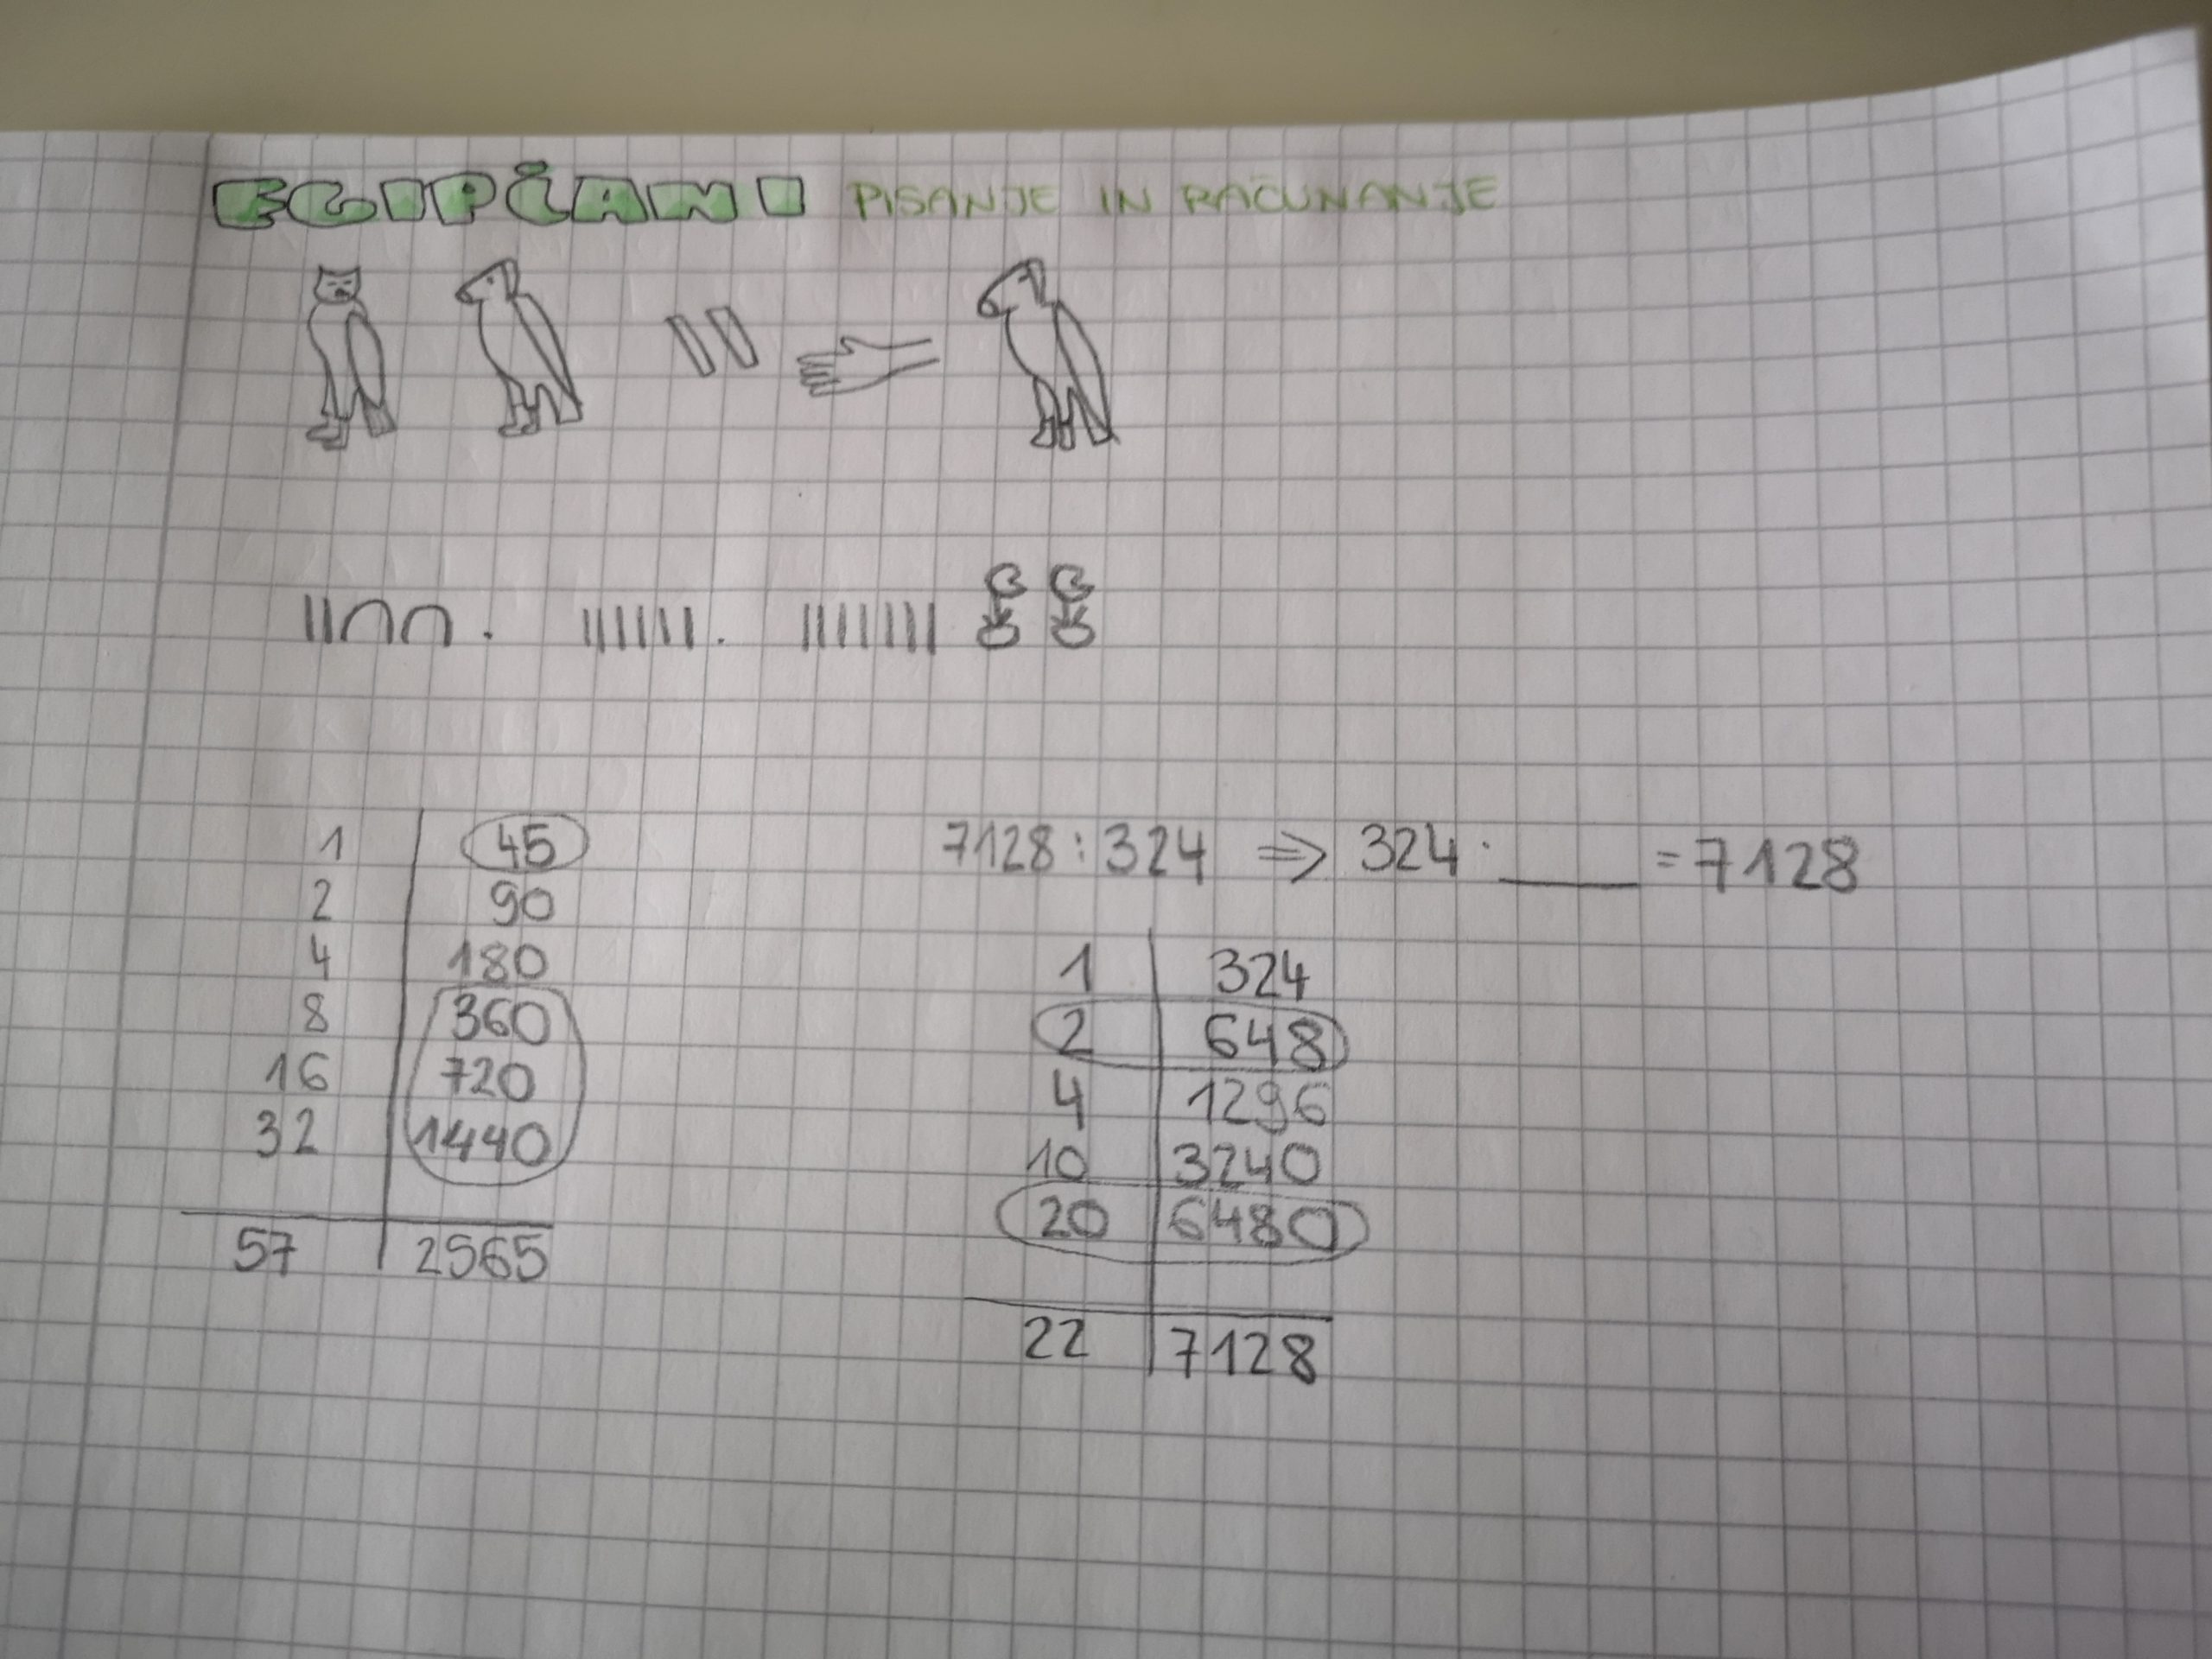 EGIPČANI PISANJE IN RAČUNANJE
1 45
2 90
4 180
8 360
16 720
32 1440
57 2565
7128 : 324 ⇒ 324 · ____ = 7128
1 324
2 648
4 1296
10 3240
20 6480
22 7128